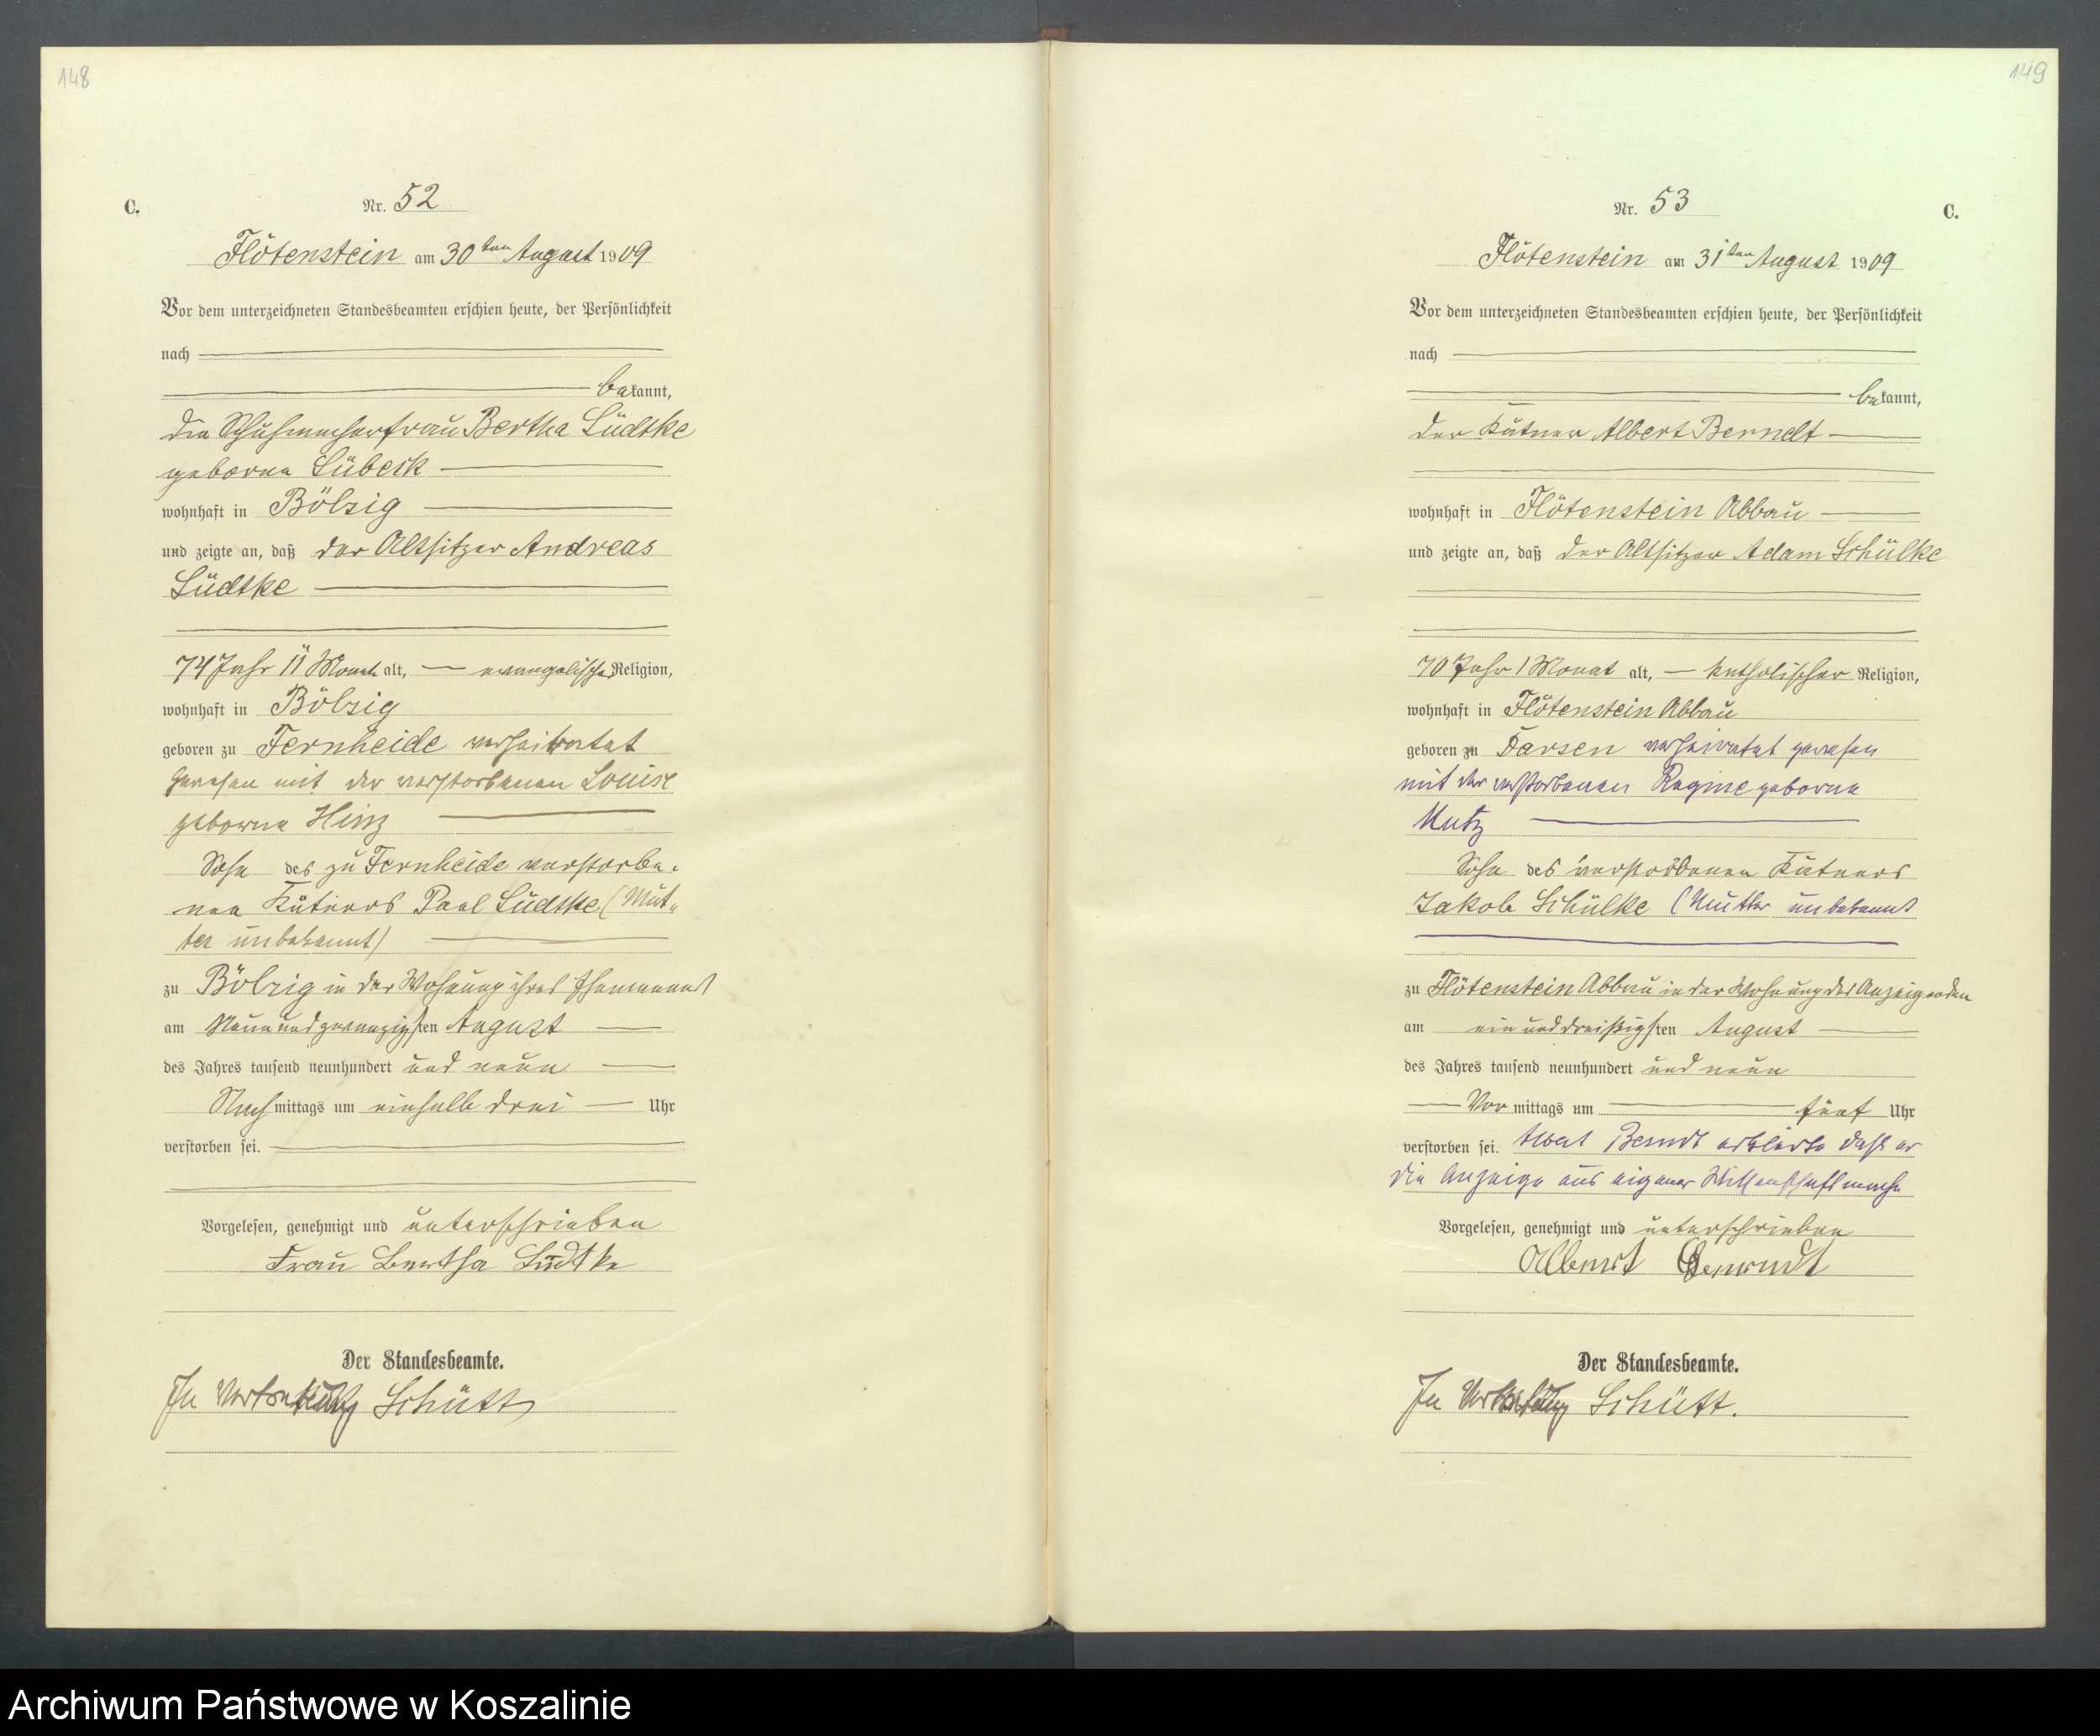 148
C.
Nr. 52
Flötenstein am 30ten August 1909
Vor dem unterzeichneten Standesbeamten erschien heute, der Persönlichkeit
nach
bekannt,
die Schuhmacherfrau Bertha Lüdtke
geborne Lübeck
wohnhaft in Bölzig
und zeigte an, daß der Altsitzer Andreas
Lüdtke
74 Jahr 11 Monate alt, evangelischer Religion,
wohnhaft in Bölzig
geboren zu Fernheide verheirathet
gewesen mit der verstorbenen Louise
geborne Hinz
Sohn des zu Fernheide verstorbe-
nen Kätners Paul Lüdtke (Mut-
ter unbekannt)
zu Bölzig in der Wohnung ihres Ehemannes
am Neunundzwanzigsten August
des Jahres tausend neunhundert und neun
Nachmittags um einhalb drei Uhr
verstorben sei.
Vorgelesen, genehmigt und unterschrieben
Frau Bertha Lüdtke
Der Standesbeamte.
In Vertretung Schütt
149
Nr. 53
C.
Flötenstein am 31ten August 1909
Vor dem unterzeichneten Standesbeamten erschien heute, der Persönlichkeit
nach
bekannt,
der Kätner Albert Berndt
wohnhaft in Flötenstein Abbau
und zeigte an, daß der Altsitzer Adam Schülke
70 Jahr 1 Monat alt, katholischer Religion,
wohnhaft in Flötenstein Abbau
geboren zu Darsen verheiratet gewesen
mit der verstorbenen Regine geborne
Mutz
Sohn des verstorbenen Kätners
Jakob Schülke (Mutter unbekannt
zu Flötenstein Abbau in der Wohnung des Anzeigenden
am ein und dreißigsten August
des Jahres tausend neunhundert und neun
Vormittags um fünf Uhr
verstorben sei. Berndt erklärte daß er
die Anzeige aus eigener Wissenschaft mache
Vorgelesen, genehmigt und unterschrieben
Albert Berndt
Der Standesbeamte.
In Vertretung Schütt.
Archiwum Państwowe w Koszalinie